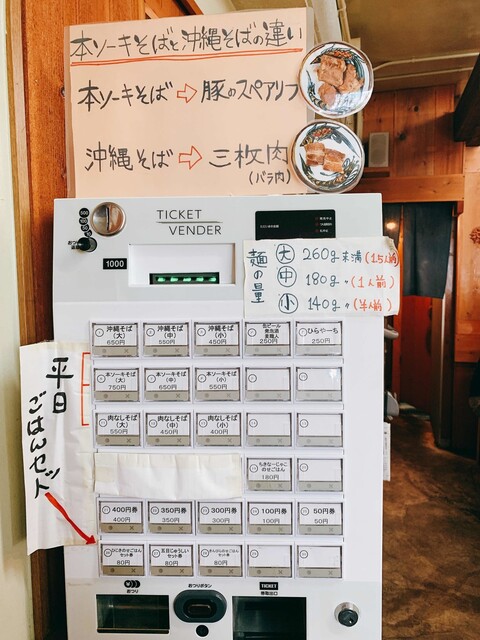 本ソーキそばと沖縄そばの違い
本ソーキそば⇨豚のスペアリブ
沖縄そば⇨三枚肉
(バラ肉)
TICKET
VENDER
1000
麺の量
大 260g未満(1.5人前)
中 180g 〃(1人前)
小 140g 〃(半人前)
沖縄そば
(大)
650円
沖縄そば
(中)
550円
沖縄そば
(小)
450円
250円
ひらやーち
250円
本ソーキそば
(大)
750円
本ソーキそば
(中)
650円
本ソーキそば
(小)
550円
肉なしそば
(大)
550円
肉なしそば
(中)
450円
肉なしそば
(小)
400円
平日
ごはんセット
のせごはん
180円
400円券
400円
350円券
350円
300円券
300円
100円券
100円
50円券
50円
セット券
80円
五目じゅうしぃ
セット券
80円
セット券
80円
おつり
おつりボタン
TICKET
券取出口